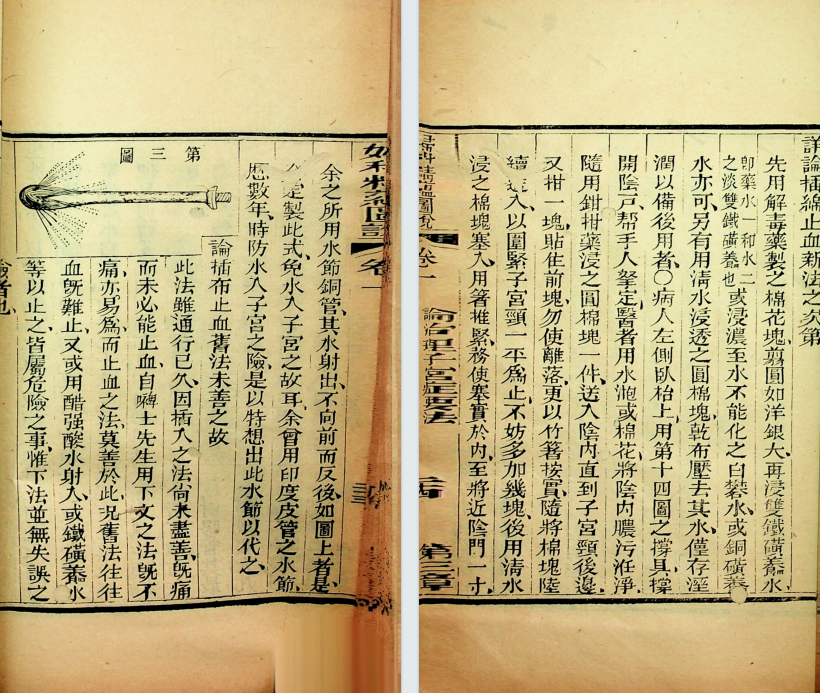 余之所用水節銅管、其水射出、不向前而反後、如圖上者是、
定製此式、免水入子宮之故耳、余曾用印度皮管之水節、
歷數年、時防水入子宮之險、是以特想出此水節以代之、
第三圖
論插布止血舊法未善之故
此法雖通行已久、因插入之法尚未盡善、旣痛
而未必能止血、自嘶士先生用下文之法、旣不
痛、亦易爲、而止血之法、莫善於此、況舊法往往
血旣難止、又或用醋强酸水射入、或鐵磺養水
等以止之、皆屬危險之事、惟下法並無失誤之
險者也、
詳論插綿止血新法之次第
先用解毒藥製之棉花塊、剪圓如洋銀大、再浸雙鐵磺養水、
卽藥水一和水二
之淡雙鐵磺養也
或浸濃至水不能化之白礬水、或銅磺養
水亦可、另有用清水浸透之圓棉塊、乾布壓去其水、僅存溼
潤、以備後用者○病人左側臥枱上、用第十四圖之撐具、撐
開陰戸、幫手人拏定、醫者用水泡或棉花、將陰內膿污洗淨、
隨用鉗拑藥浸之圓棉塊一件、送入陰內、直到子宮頸後邊、
又拑一塊、貼住前塊、勿使離落、更以竹箸按實、隨將棉塊陸
續送入、以圍緊子宮頸一平爲止、不妨多加幾塊、後用清水
浸之棉塊塞入、用箸推緊、務使塞實於內、至將近陰門一寸、
卷一
論治理子宮症要法
第三章